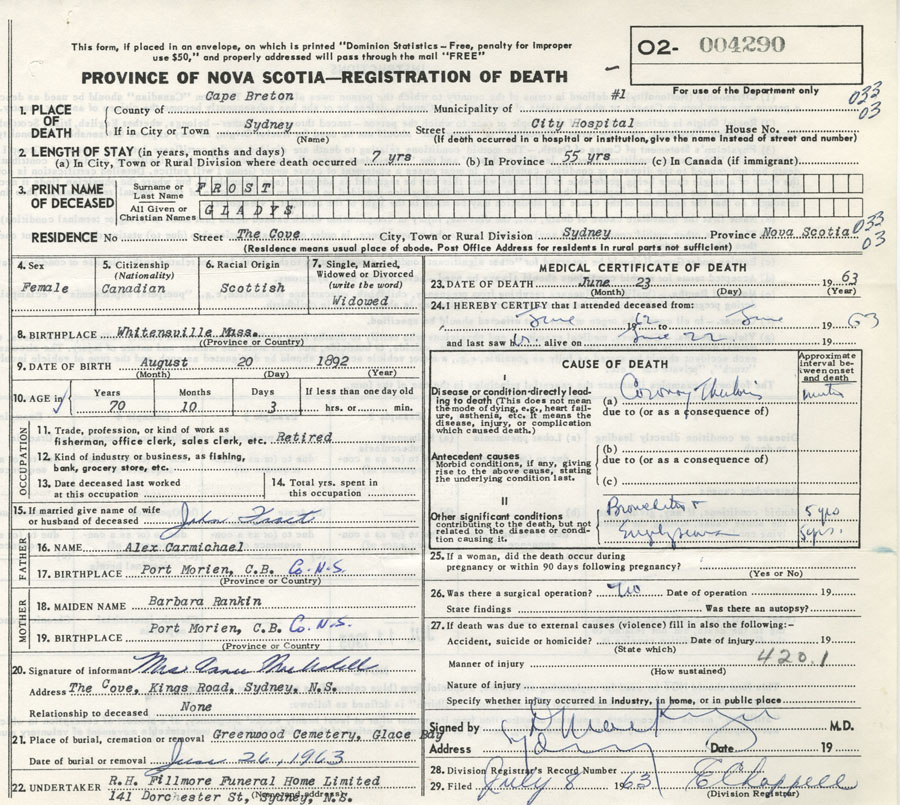 This form, if placed in an envelope, on which is printed "Dominion Statistics – Free, penalty for improper
use $50," and properly addressed will pass through the mail "FREE"
O2- 004290
PROVINCE OF NOVA SCOTIA—REGISTRATION OF DEATH
For use of the Department only
033
03
1. PLACE OF DEATH
County of Cape Breton Municipality of #1
If in City or Town Sydney Street City Hospital House No.
(Name) (If death occurred in a hospital or institution, give the name instead of street and number)
2. LENGTH OF STAY (in years, months and days)
(a) In City, Town or Rural Division where death occurred 7 yrs (b) In Province 55 yrs (c) In Canada (if immigrant)
3. PRINT NAME OF DECEASED
Surname or Last Name FROST
All Given or Christian Names GLADYS
RESIDENCE No Street The Cove City, Town or Rural Division Sydney Province Nova Scotia
033
03
(Residence means usual place of abode. Post Office Address for residents in rural parts not sufficient)
4. Sex Female
5. Citizenship (Nationality) Canadian
6. Racial Origin Scottish
7. Single, Married, Widowed or Divorced (write the word) Widowed
8. BIRTHPLACE Whitensville Mass.
(Province or Country)
9. DATE OF BIRTH August 20 1892
(Month) (Day) (Year)
10. AGE in Years 70 Months 10 Days 3 If less than one day old hrs. or min.
OCCUPATION
11. Trade, profession, or kind of work as
fisherman, office clerk, sales clerk, etc. Retired
12. Kind of industry or business, as fishing,
bank, grocery store, etc.
13. Date deceased last worked
at this occupation
14. Total yrs. spent in
this occupation
15. If married give name of wife
or husband of deceased John Frost
FATHER
16. NAME Alex Carmichael
17. BIRTHPLACE Port Morien, C.B. Co. N.S.
(Province or Country)
MOTHER
18. MAIDEN NAME Barbara Rankin
19. BIRTHPLACE Port Morien, C.B. Co. N.S.
(Province or Country
20. Signature of informant Mrs
Address The Cove, Kings Road, Sydney, N.S.
Relationship to deceased None
21. Place of burial, cremation or removal Greenwood Cemetery, Glace Bay
Date of burial or removal June 26, 1963
22. UNDERTAKER R.H. Fillmore Funeral Home Limited
141 Dorchester St, Sydney, N.S.
(Name and address)
MEDICAL CERTIFICATE OF DEATH
23. DATE OF DEATH June 23 1963
(Month) (Day) (Year)
24. I HEREBY CERTIFY that I attended deceased from:
June 1962 to June 1963
and last saw h alive on June 22 19
CAUSE OF DEATH
Approximate interval between onset and death
I
Disease or condition directly leading to death (This does not mean the mode of dying, e.g., heart failure, asthenia, etc. It means the disease, injury, or complication which caused death.)
(a) Coronary
due to (or as a consequence of)
Antecedent causes
Morbid conditions, if any, giving rise to the above cause, stating the underlying condition last.
(b)
due to (or as a consequence of)
(c)
II
Other significant conditions contributing to the death, but not related to the disease or condition causing it.
Bronchitis + 5 yrs
Emphysema 5 yrs.
25. If a woman, did the death occur during
pregnancy or within 90 days following pregnancy?
(Yes or No)
26. Was there a surgical operation? No Date of operation 19
State findings Was there an autopsy?
27. If death was due to external causes (violence) fill in also the following:–
Accident, suicide or homicide? Date of injury 19
(State which)
Manner of injury 420.1
(How sustained)
Nature of injury
Specify whether injury occurred in industry, in home, or in public place
Signed by M.D.
Address Date 19
28. Division Registrar's Record Number
29. Filed July 8 1963 E Chappell
(Division Registrar)